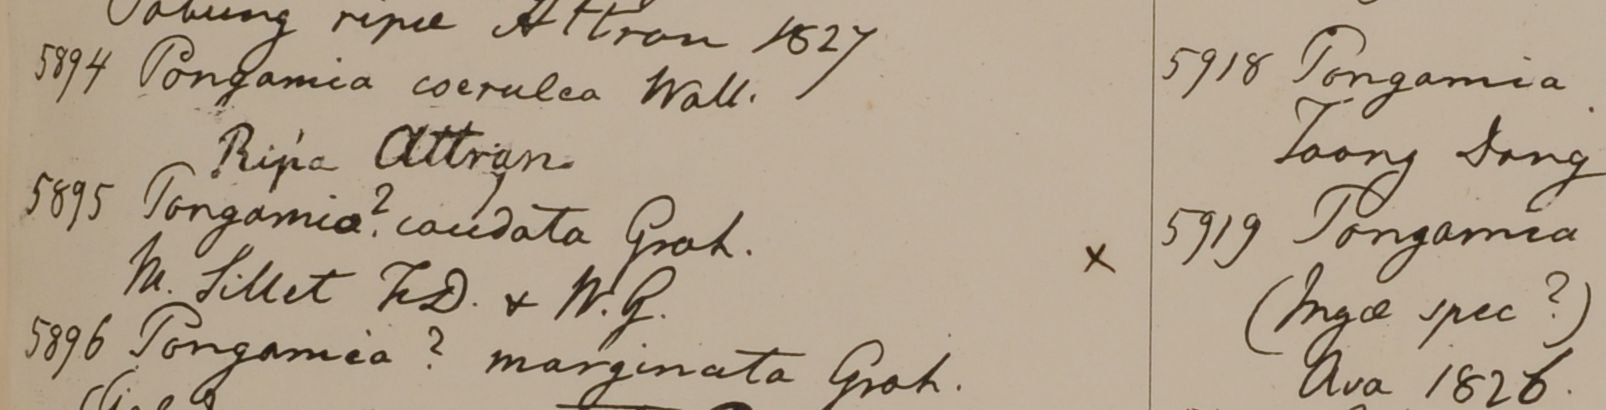 ripæ Attran 1827
5894 Pongamia coerulea Wall.
Ripa Attran.
5895 Pongamia? caudata Grah.
M. Sillet F.D. & W.G.
5896 Pongamia? marginata Grah.
5918 Pongamia
Toong Dong
x 5919 Pongamia
(Ingæ spec?)
Ava 1826.